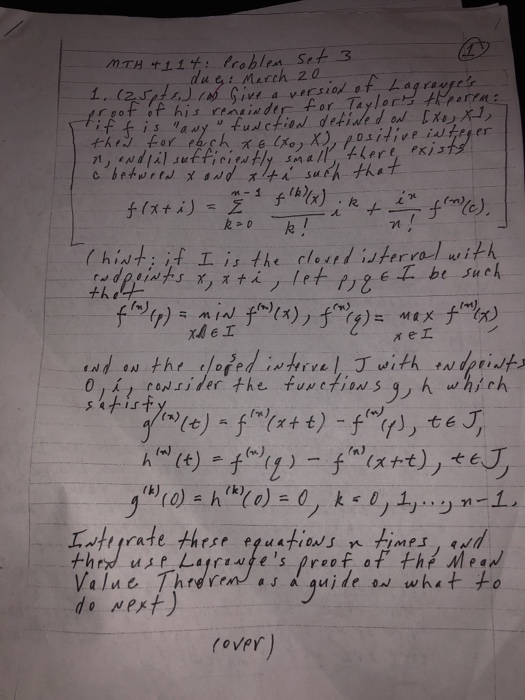 1
MTH 4114: Problem Set 3
due: March 20
1. (25pts.) (a) Give a version of Lagrange's
proof of his remainder for Taylor's theorem:
"if f is "any" function defined on [x₀, X],
then for each x ∈ (x₀, X), positive integer
n, and |i| sufficiently small, there exists
c between x and x+i such that
f(x+i) = Σ_{k=0}^{n-1} f^{(k)}(x)/k! i^k + i^n/n! f^{(n)}(c).
(hint: if I is the closed interval with
endpoints x, x+i, let p, q ∈ I be such
that
f^{(n)}(p) = min_{x ∈ I} f^{(n)}(x), f^{(n)}(q) = max_{x ∈ I} f^{(n)}(x)
and on the closed interval J with endpoints
0, i, consider the functions g, h which
satisfy
g^{(n)}(t) = f^{(n)}(x+t) - f^{(n)}(p), t ∈ J,
h^{(n)}(t) = f^{(n)}(q) - f^{(n)}(x+t), t ∈ J,
g^{(k)}(0) = h^{(k)}(0) = 0, k = 0, 1, ..., n-1.
Integrate these equations n times, and
then use Lagrange's proof of the Mean
Value Theorem as a guide on what to
do next)
(over)